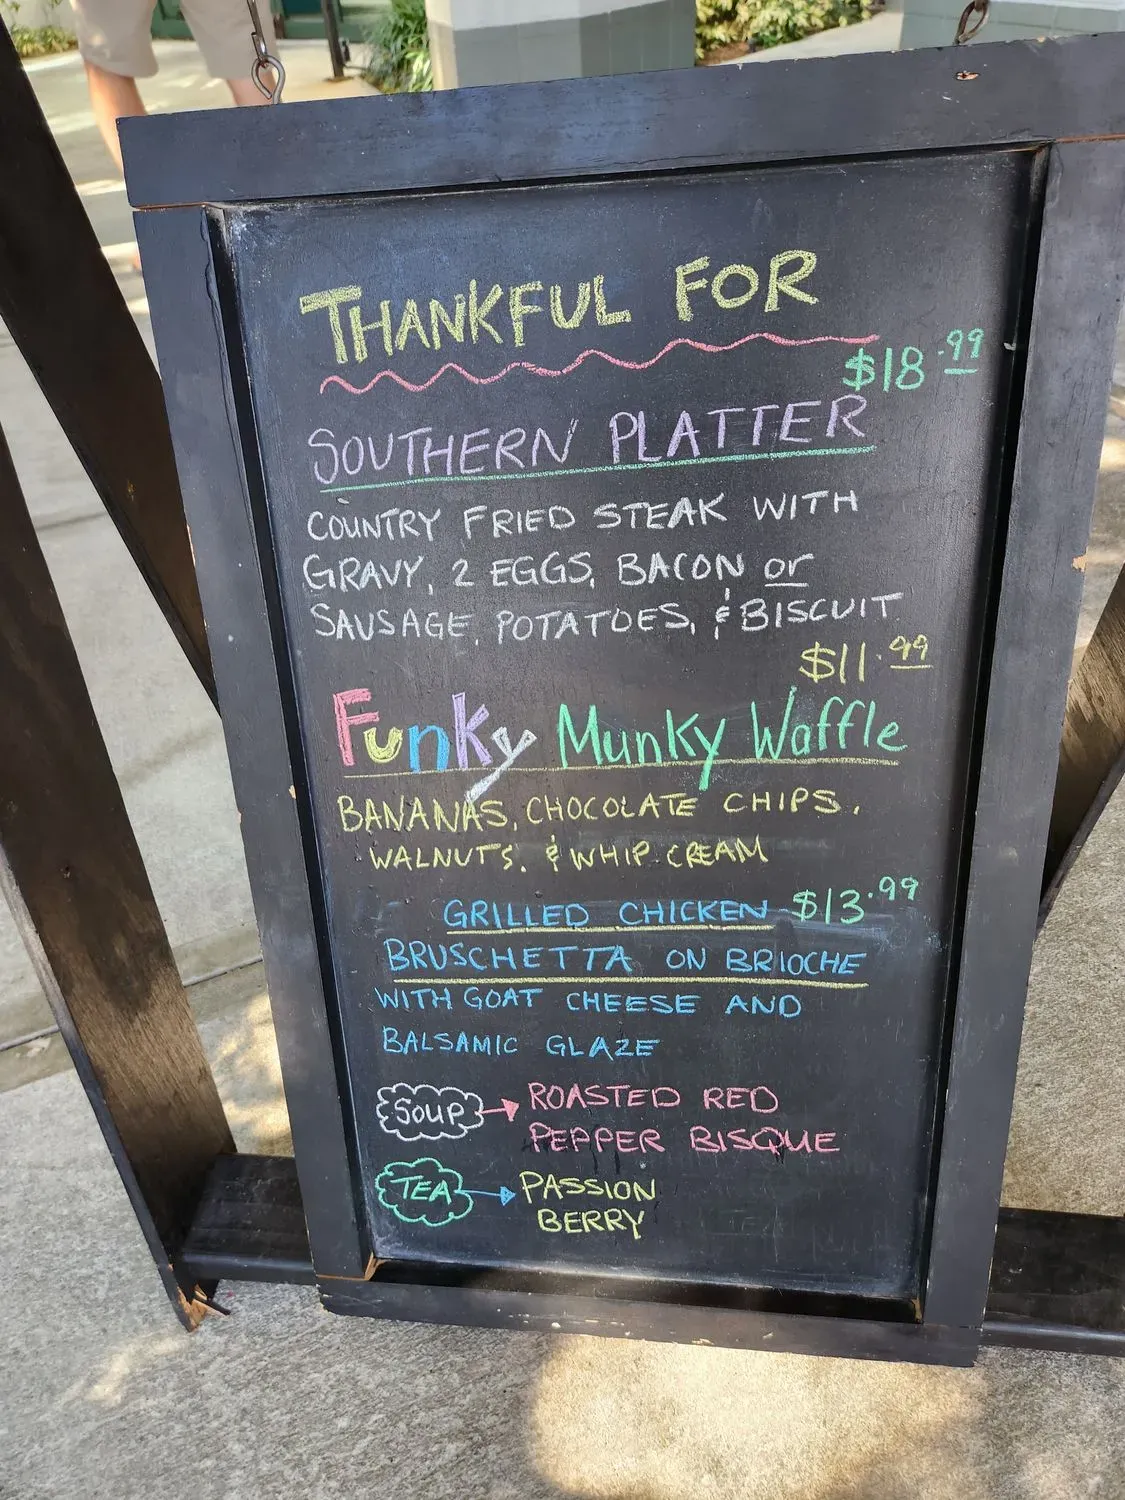 THANKFUL FOR
$18.99
SOUTHERN PLATTER
COUNTRY FRIED STEAK WITH
GRAVY, 2 EGGS, BACON or
SAUSAGE, POTATOES, & BISCUIT
$11.99
Funky Munky Waffle
BANANAS, CHOCOLATE CHIPS,
WALNUTS, & WHIP CREAM
GRILLED CHICKEN $13.99
BRUSCHETTA ON BRIOCHE
WITH GOAT CHEESE AND
BALSAMIC GLAZE
SOUP → ROASTED RED
PEPPER BISQUE
TEA → PASSION
BERRY